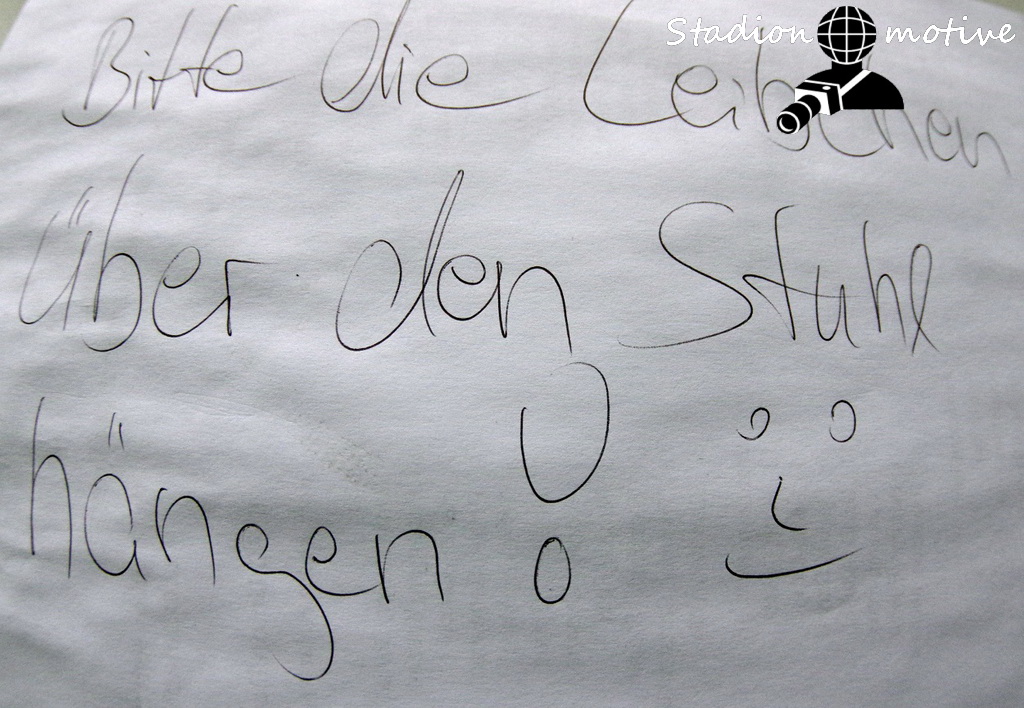 Stadion motive
Bitte die Leibchen
über den Stuhl
hängen!